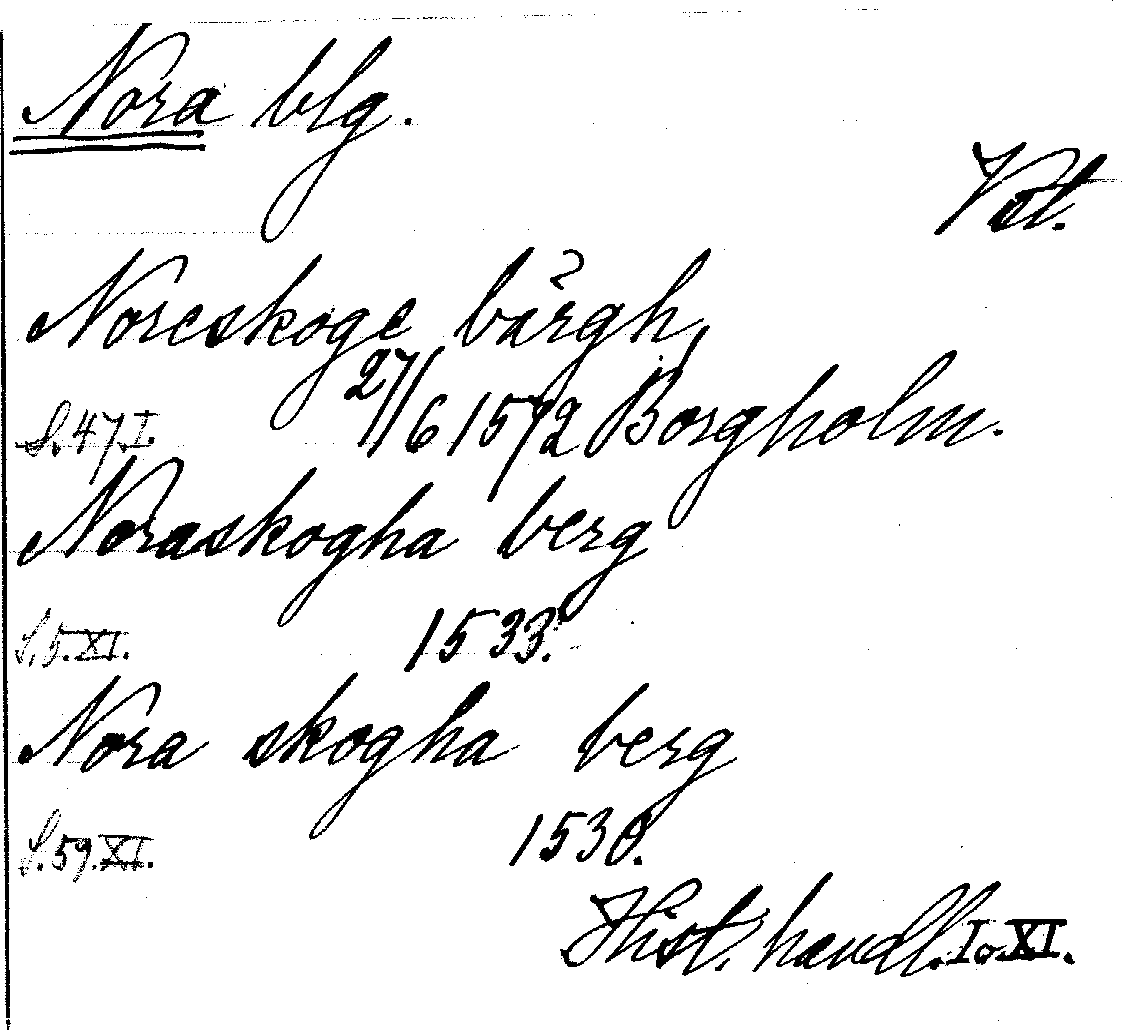 Nora blg.
Vstl.
Noreskoge bårgh,
S. 47 I. 27/6 1572 Borgholm.
Noraskogha berg
S. 5. XI. 1533.
Nora skogha berg
S. 59. XI. 1530.
Hist. handl. I o. XI.